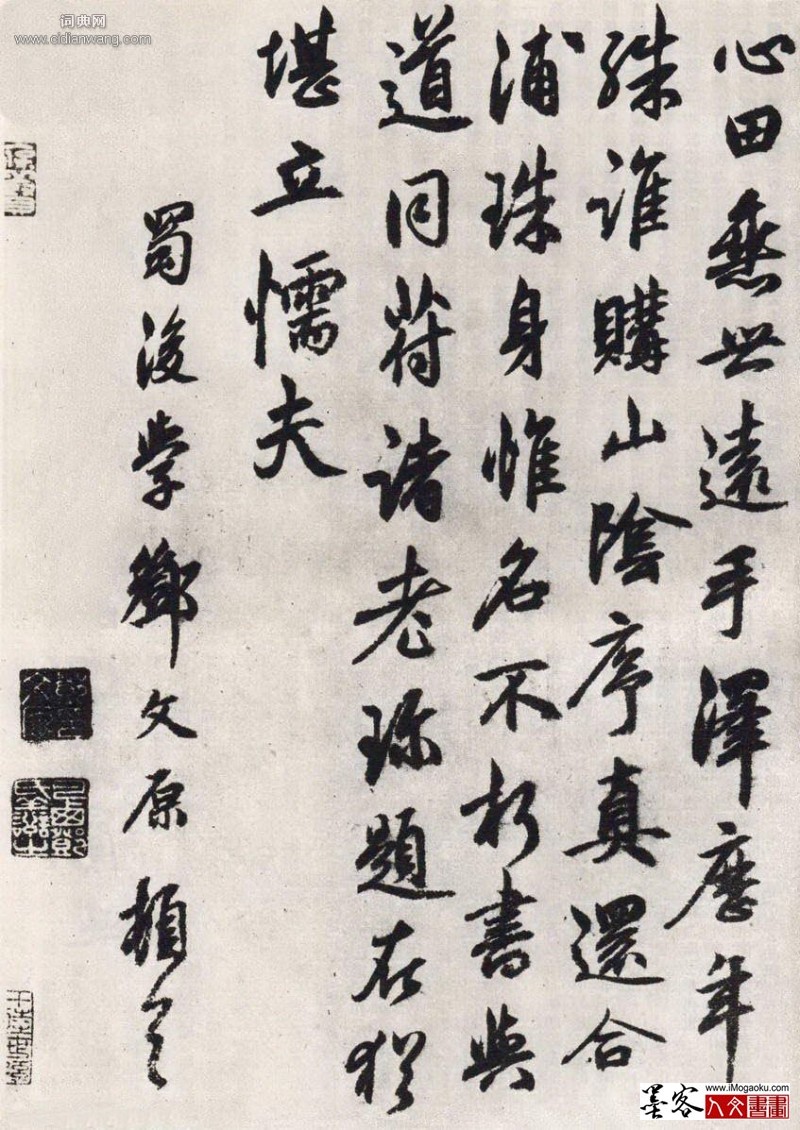 心田垂世遠手澤歷年
殊誰購山陰序真還合
浦珠身惟名不朽書與
道同符諸老珎題在猶
堪立懦夫
蜀後學鄧文原頓首
词典网
www.cidianwang.com
www.iMogaoku.com
墨客人文書畫